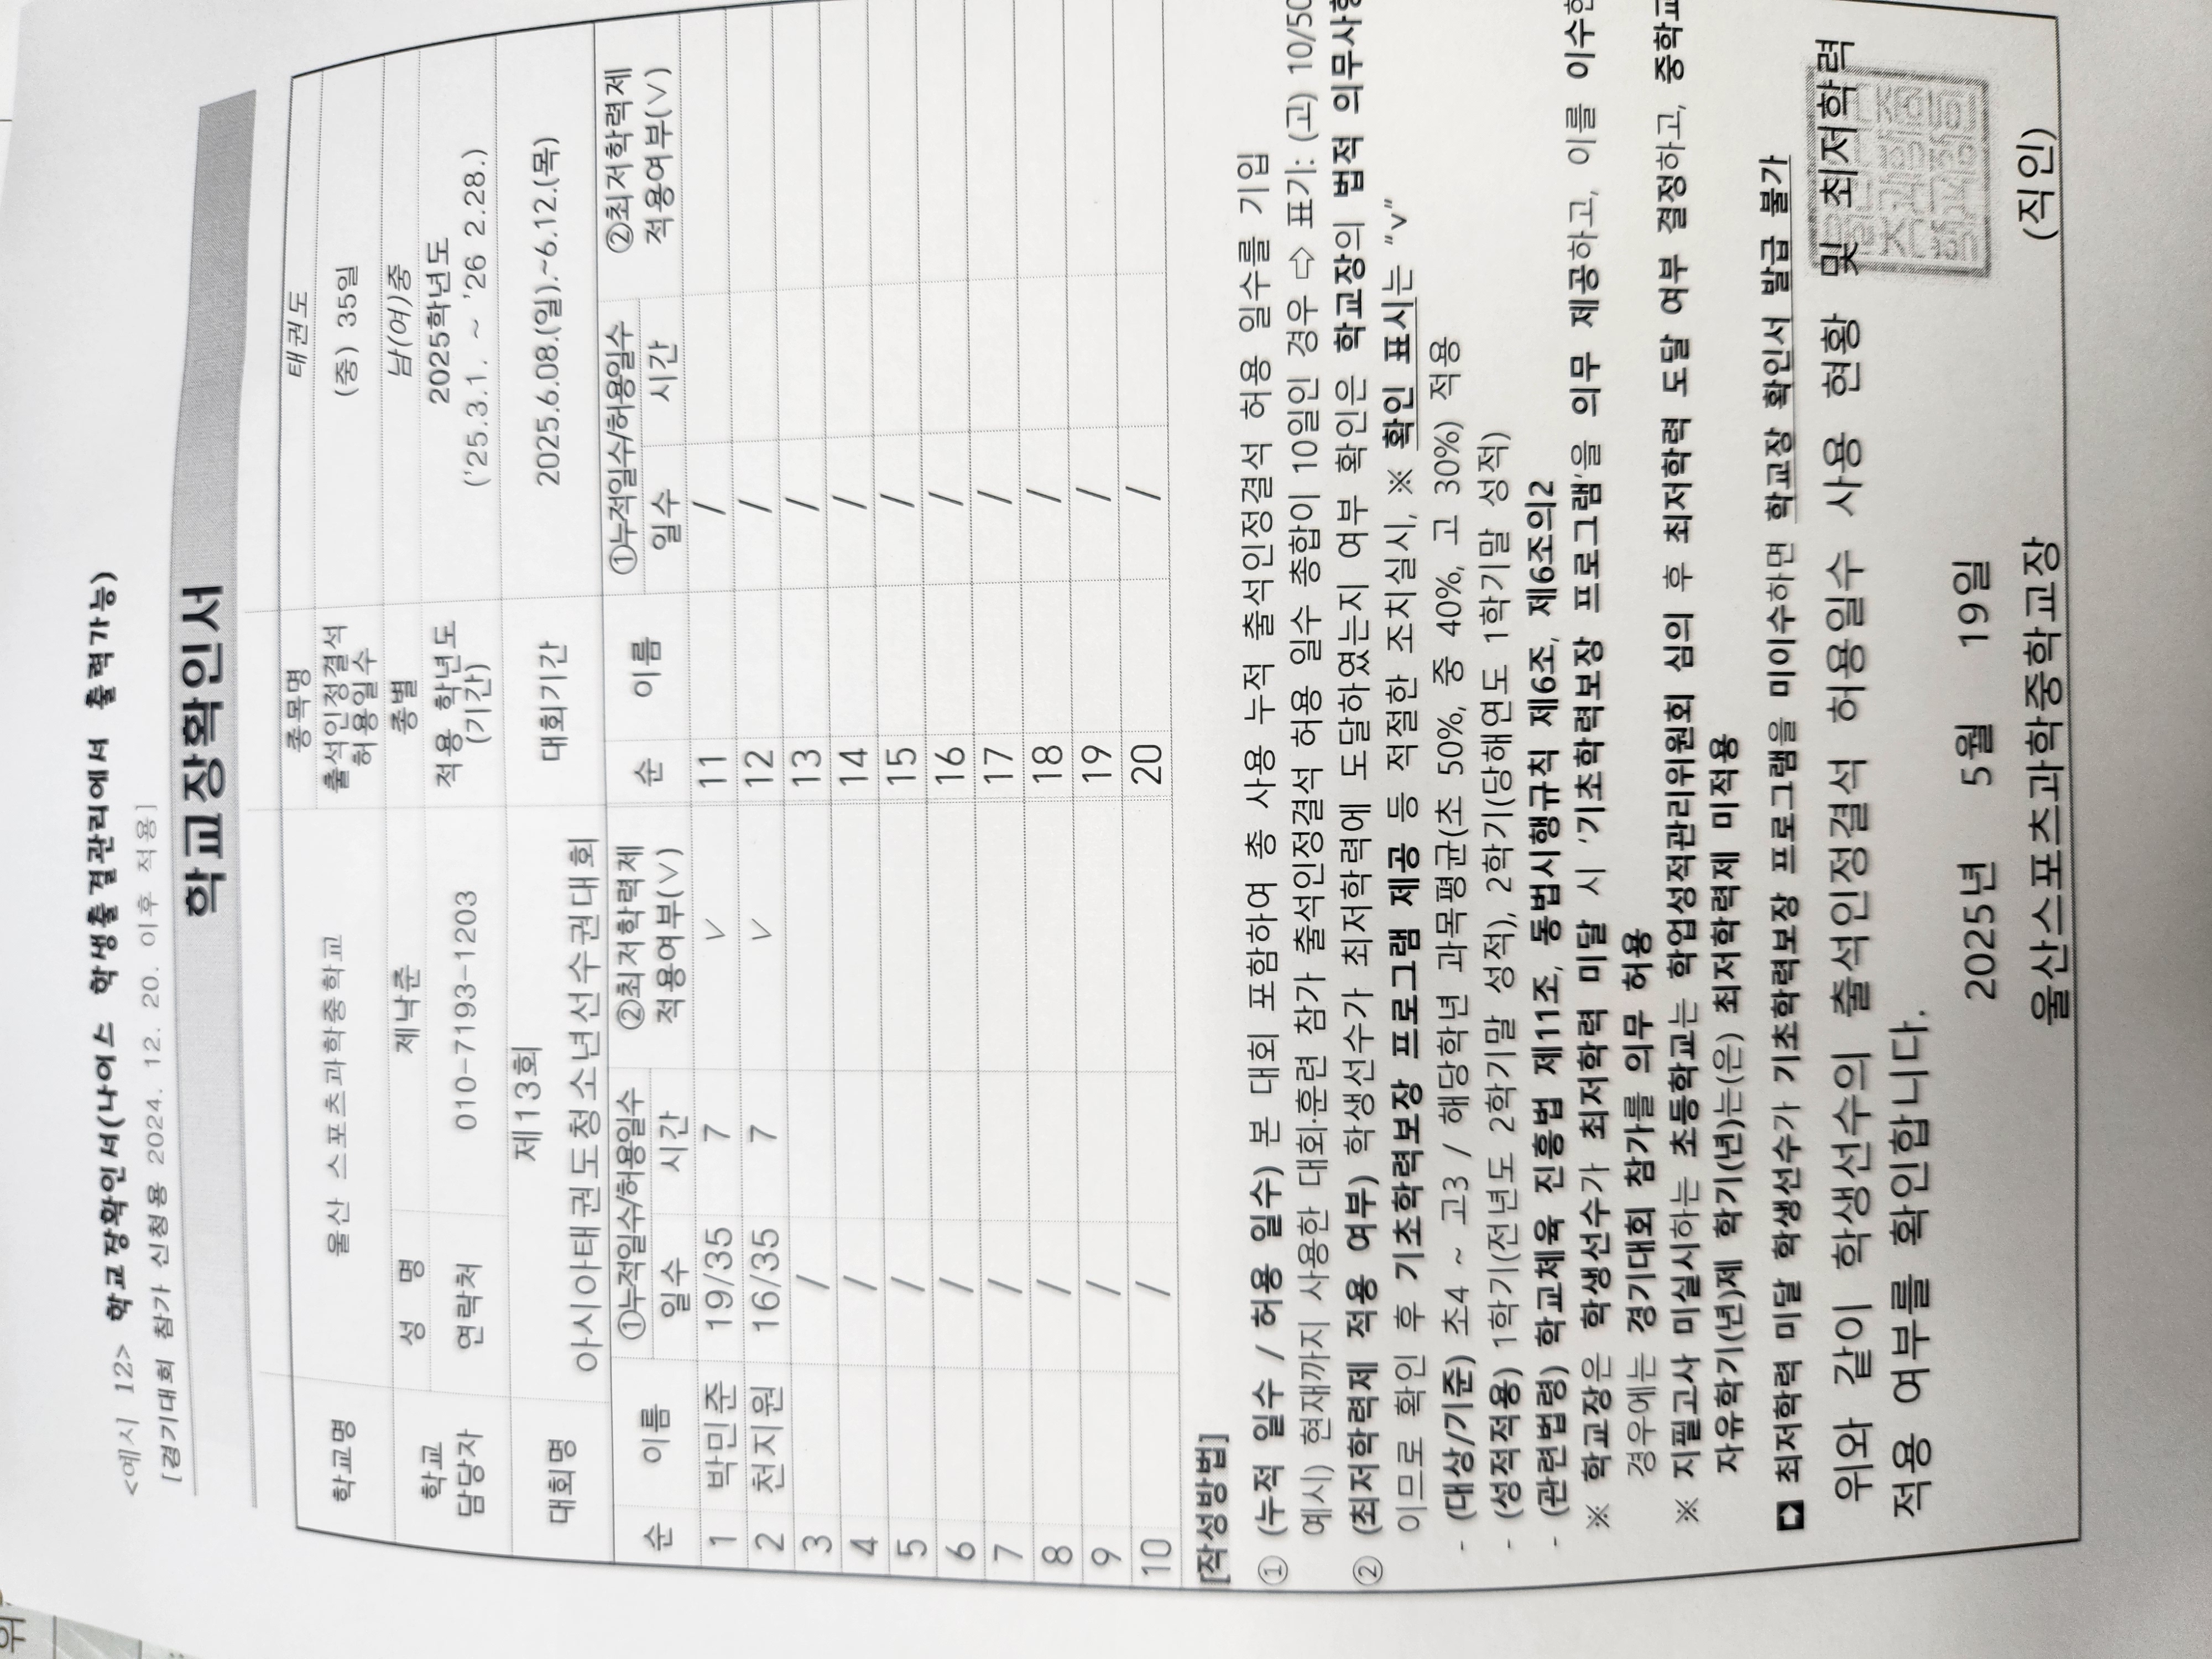 <예시 12> 학교장확인서(나이스 학생출결관리에서 출력가능)
[경기대회 참가 신청용 2024. 12. 20. 이후 적용]
학교장확인서
학교명 울산 스포츠과학중학교 종목명 태권도
출석인정결석 허용일수 (중) 35일
학교 담당자 성 명 제낙춘 종별 남(여)중
연락처 010-7193-1203 적용 학년도 (기간) 2025학년도 ('25.3.1. ~ '26 2.28.)
대회명 제13회 아시아태권도청소년선수권대회 대회기간 2025.6.08.(일).~6.12.(목)
순 이름 ①누적일수/허용일수 ②최저학력제 적용여부(∨) 순 이름 ①누적일수/허용일수 ②최저학력제 적용여부(∨)
일수 시간 일수 시간
1 박민준 19/35 7 ∨ 11 /
2 천지원 16/35 7 ∨ 12 /
3 / 13 /
4 / 14 /
5 / 15 /
6 / 16 /
7 / 17 /
8 / 18 /
9 / 19 /
10 / 20 /
[작성방법]
① (누적 일수 / 허용 일수) 본 대회 포함하여 총 사용 누적 출석인정결석 허용 일수를 기입
예시) 현재까지 사용한 대회·훈련 참가 출석인정결석 허용 일수 총합이 10일인 경우 ⇨ 표기: (고) 10/50
② (최저학력제 적용 여부) 학생선수가 최저학력에 도달하였는지 여부 확인은 학교장의 법적 의무사항
이므로 확인 후 기초학력보장 프로그램 제공 등 적절한 조치실시, ※ 확인 표시는 "v"
- (대상/기준) 초4 ~ 고3 / 해당학년 과목평균(초 50%, 중 40%, 고 30%) 적용
- (성적적용) 1학기(전년도 2학기말 성적), 2학기(당해연도 1학기말 성적)
- (관련법령) 학교체육 진흥법 제11조, 동법시행규칙 제6조, 제6조의2
※ 학교장은 학생선수가 최저학력 미달 시 '기초학력보장 프로그램'을 의무 제공하고, 이를 이수한
경우에는 경기대회 참가를 의무 허용
※ 지필고사 미실시하는 초등학교는 학업성적관리위원회 심의 후 최저학력 도달 여부 결정하고, 중학교
자유학기(년)제 학기(년)는(은) 최저학력제 미적용
최저학력 미달 학생선수가 기초학력보장 프로그램을 미이수하면 학교장 확인서 발급 불가
위와 같이 학생선수의 출석인정결석 허용일수 사용 현황 및 최저학력
적용 여부를 확인합니다.
2025년 5월 19일
울산스포츠과학중학교장 (직인)
위